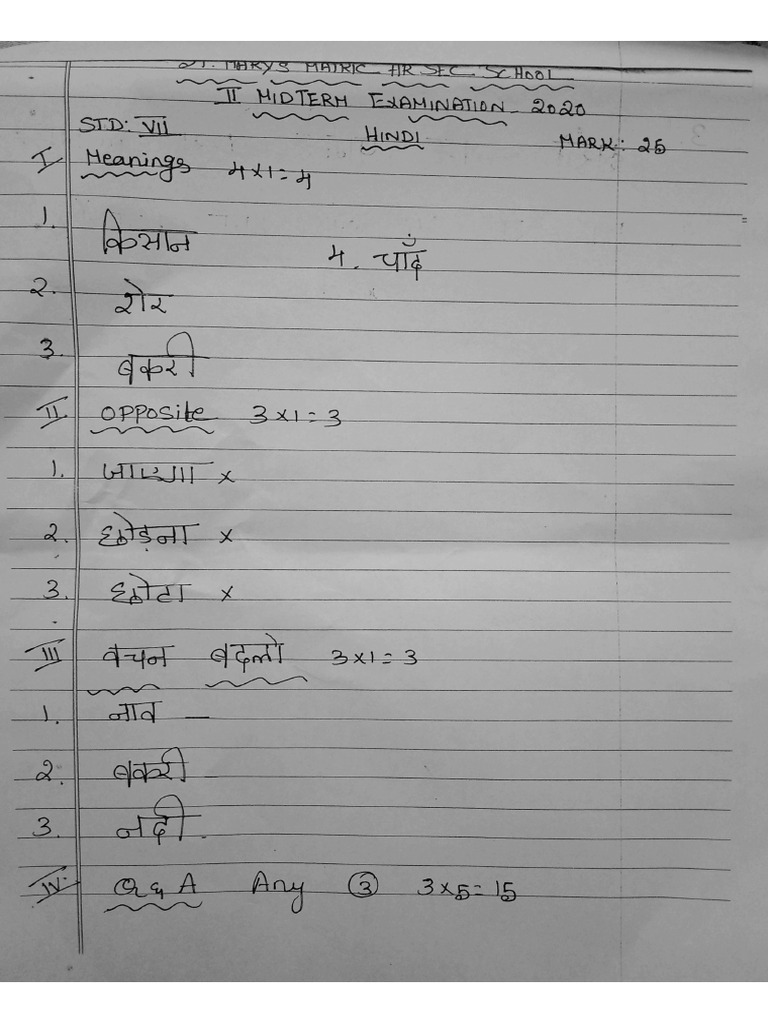 ST. MARYS MATRIC HR SEC. SCHOOL
II MIDTERM EXAMINATION - 2020
STD: VII HINDI MARK: 25
I Meanings 4x1=4
1. किसान
4. चाँद
2. शेर
3. बकरी
II OPPOSITE 3x1=3
1. x
2. छोड़ना x
3. छोटा x
III वचन बदलो 3x1=3
1. नाव —
2. बकरी —
3. नदी .
IV. Q & A Any 3 3x5=15